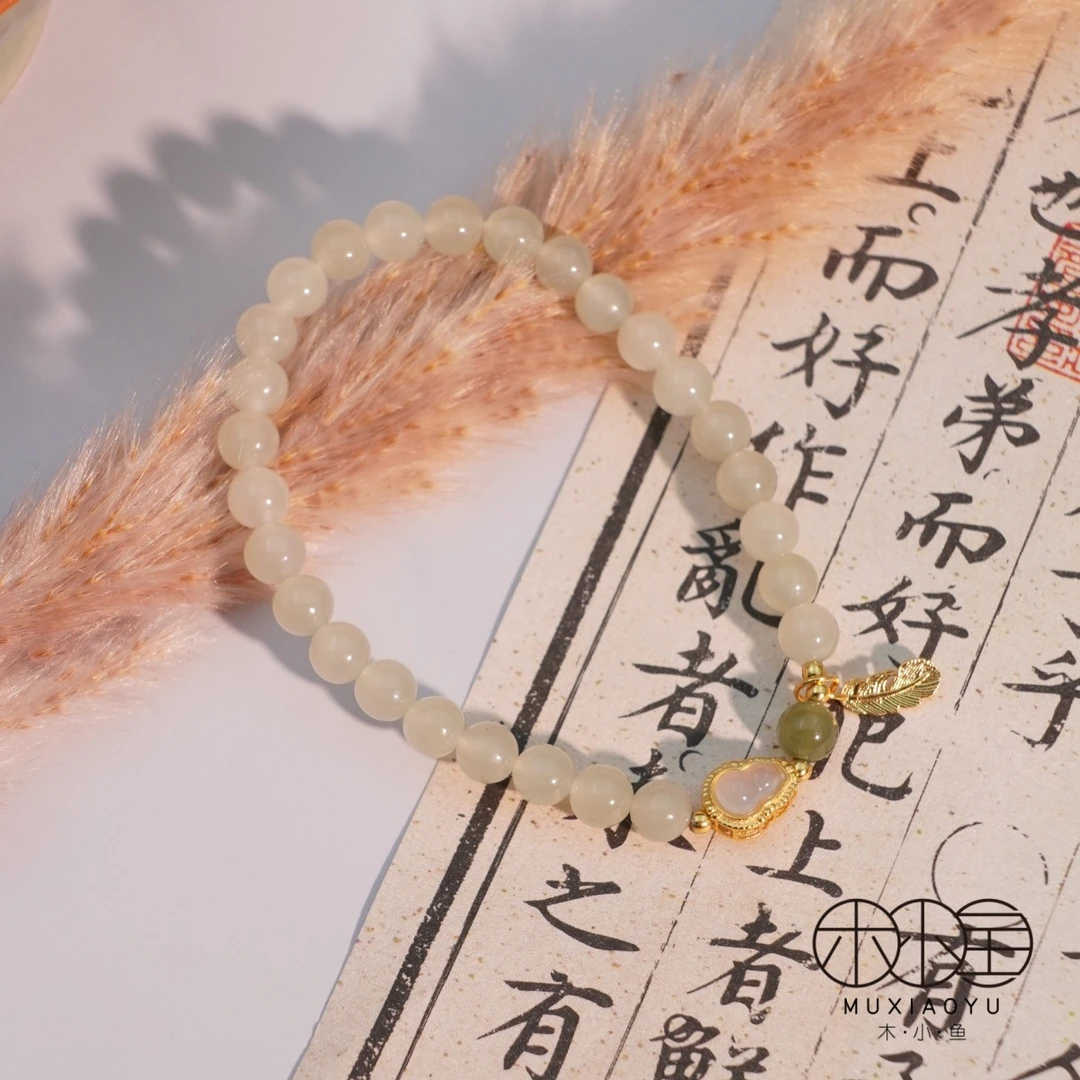 乎
有
也孝弟而好
上者鮮
上而好作亂者
之有
木小鱼
MUXIAOYU
木·小·鱼